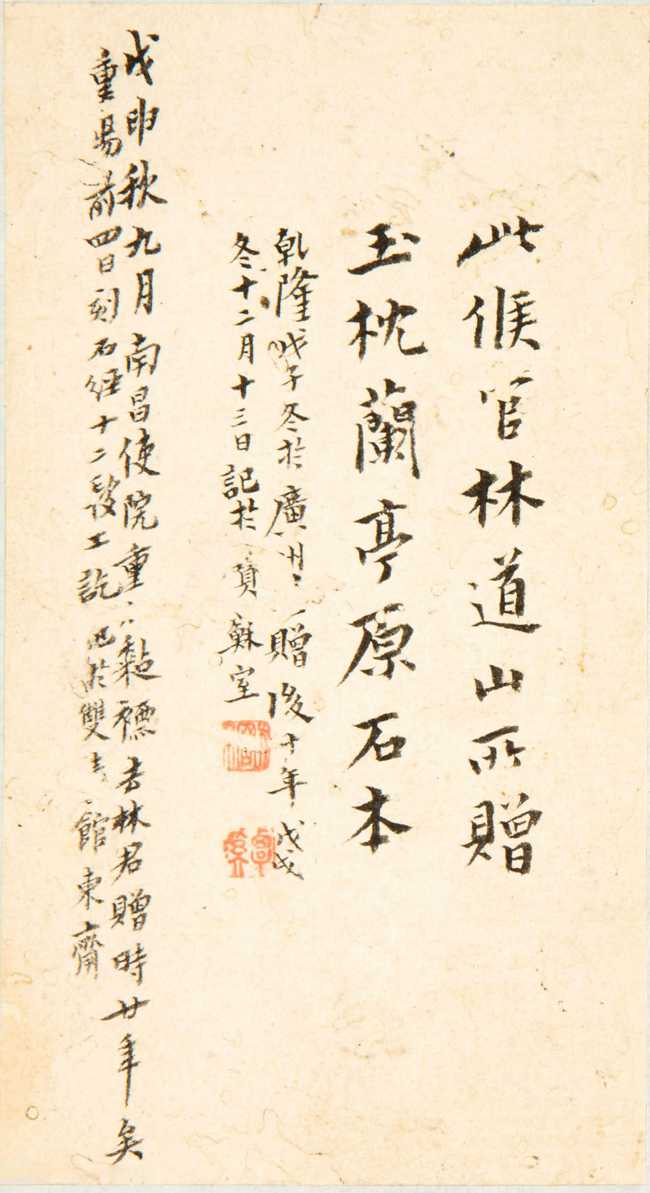 此候官林道山所贈
玉枕蘭亭原石本
乾隆戊子冬於廣州贈後十年戊戌
冬十二月十三日記於寶蘇室
戊申秋九月南昌使院重黏褾去林君贈時廿年矣
重陽前四日刻石經十二段工訖記於雙館東齋